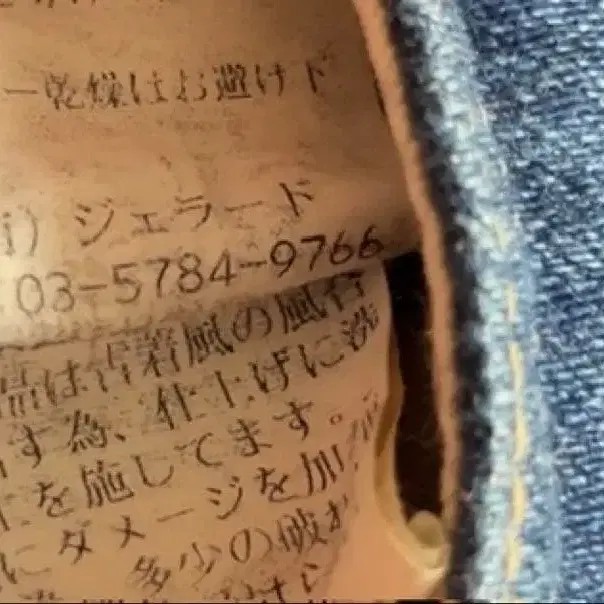 ー乾燥はお避け下
i) ジェラード
03-5784-9766
品は古着風の風合
す為、仕上げに洗
を施してます。
にダメージを加
多少の破れ